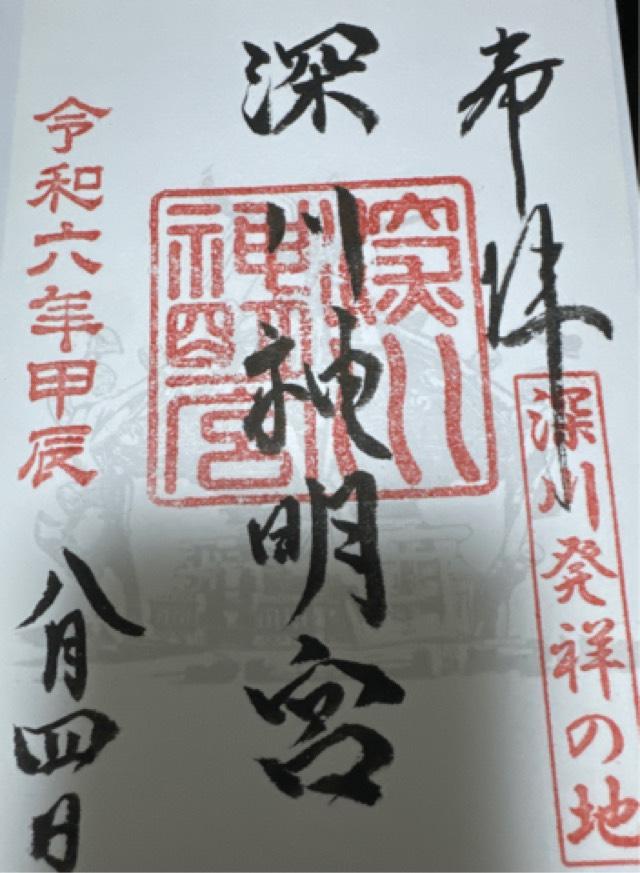 奉拝
深川発祥の地
深川神明宮
深川神明宮
令和六年甲辰
八月四日